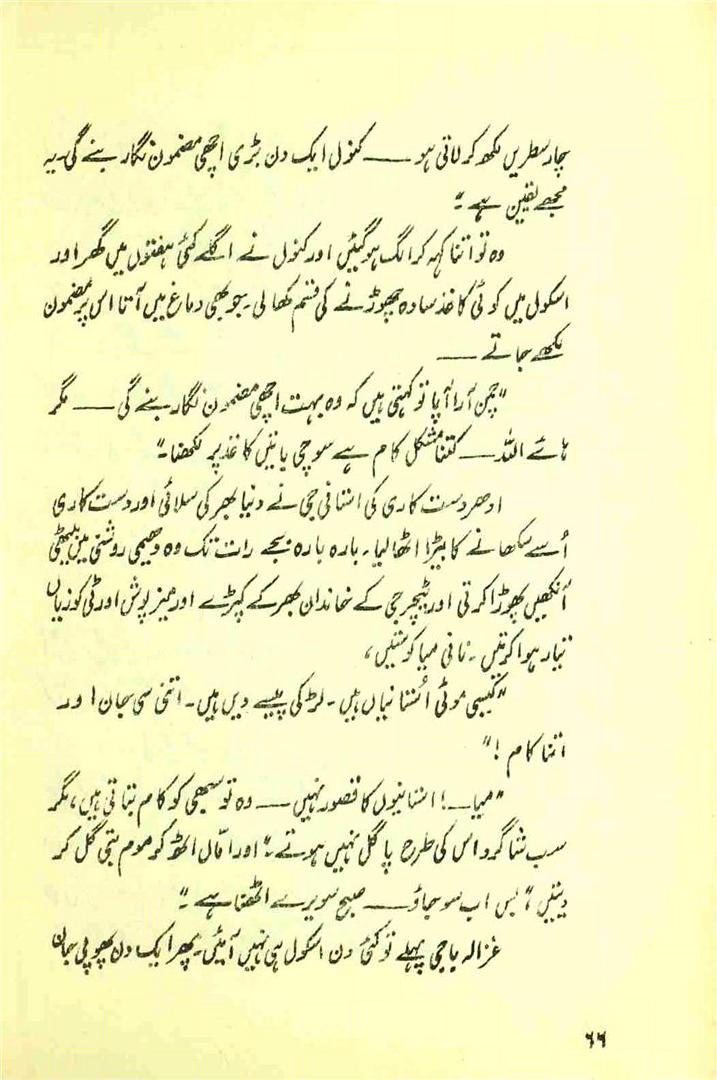 چار سطریں لکھ کر لاتی ہو —— کنول ایک دن بڑی اچھی مضمون نگار بنے گی۔ یہ
مجھے یقین ہے۔"
وہ تو اتنا کہہ کر الگ ہو گئیں اور کنول نے اگلے کئی ہفتوں میں گھر اور
اسکول میں کوئی کاغذ سادہ چھوڑنے کی قسم کھا لی۔ جو بھی دماغ میں آتا اس پر مضمون
لکھے جاتے ——
"چمن آرا آپا تو کہتی ہیں کہ وہ بہت اچھی مضمون نگار بنے گی —— مگر
ہائے اللہ —— کتنا مشکل کام ہے سوچی باتیں کاغذ پر لکھنا۔"
ادھر دست کاری کی استانی جی نے دنیا بھر کی سلائی اور دست کاری
اُسے سکھانے کا بیڑا اٹھا لیا۔ بارہ بارہ بجے رات تک وہ دھیمی روشنی میں بیٹھی
آنکھیں پھوڑا کرتی اور ٹیچر جی کے خاندان بھر کے کپڑے اور میز پوش اور ٹی کوزیاں
تیار ہوا کرتیں۔ نانی میا کوستیں،
"کیسی موئی اُستانیاں ہیں۔ لڑکی پیسے دیں ہیں۔ اتنی سی جان اور
اتنا کام!"
"میا —! استانیوں کا قصور نہیں —— وہ تو سبھی کو کام بتاتی ہیں، مگر
سب شاگرد اس کی طرح پاگل نہیں ہوتے۔" اور امّاں اٹھ کر موم بتی گل کر
دیتیں، "بس اب سو جاؤ —— صبح سویرے اٹھنا ہے۔"
غزالہ باجی پہلے تو کئی دن اسکول ہی نہیں آئیں۔ پھر ایک دن پھوپی جان
۶۶